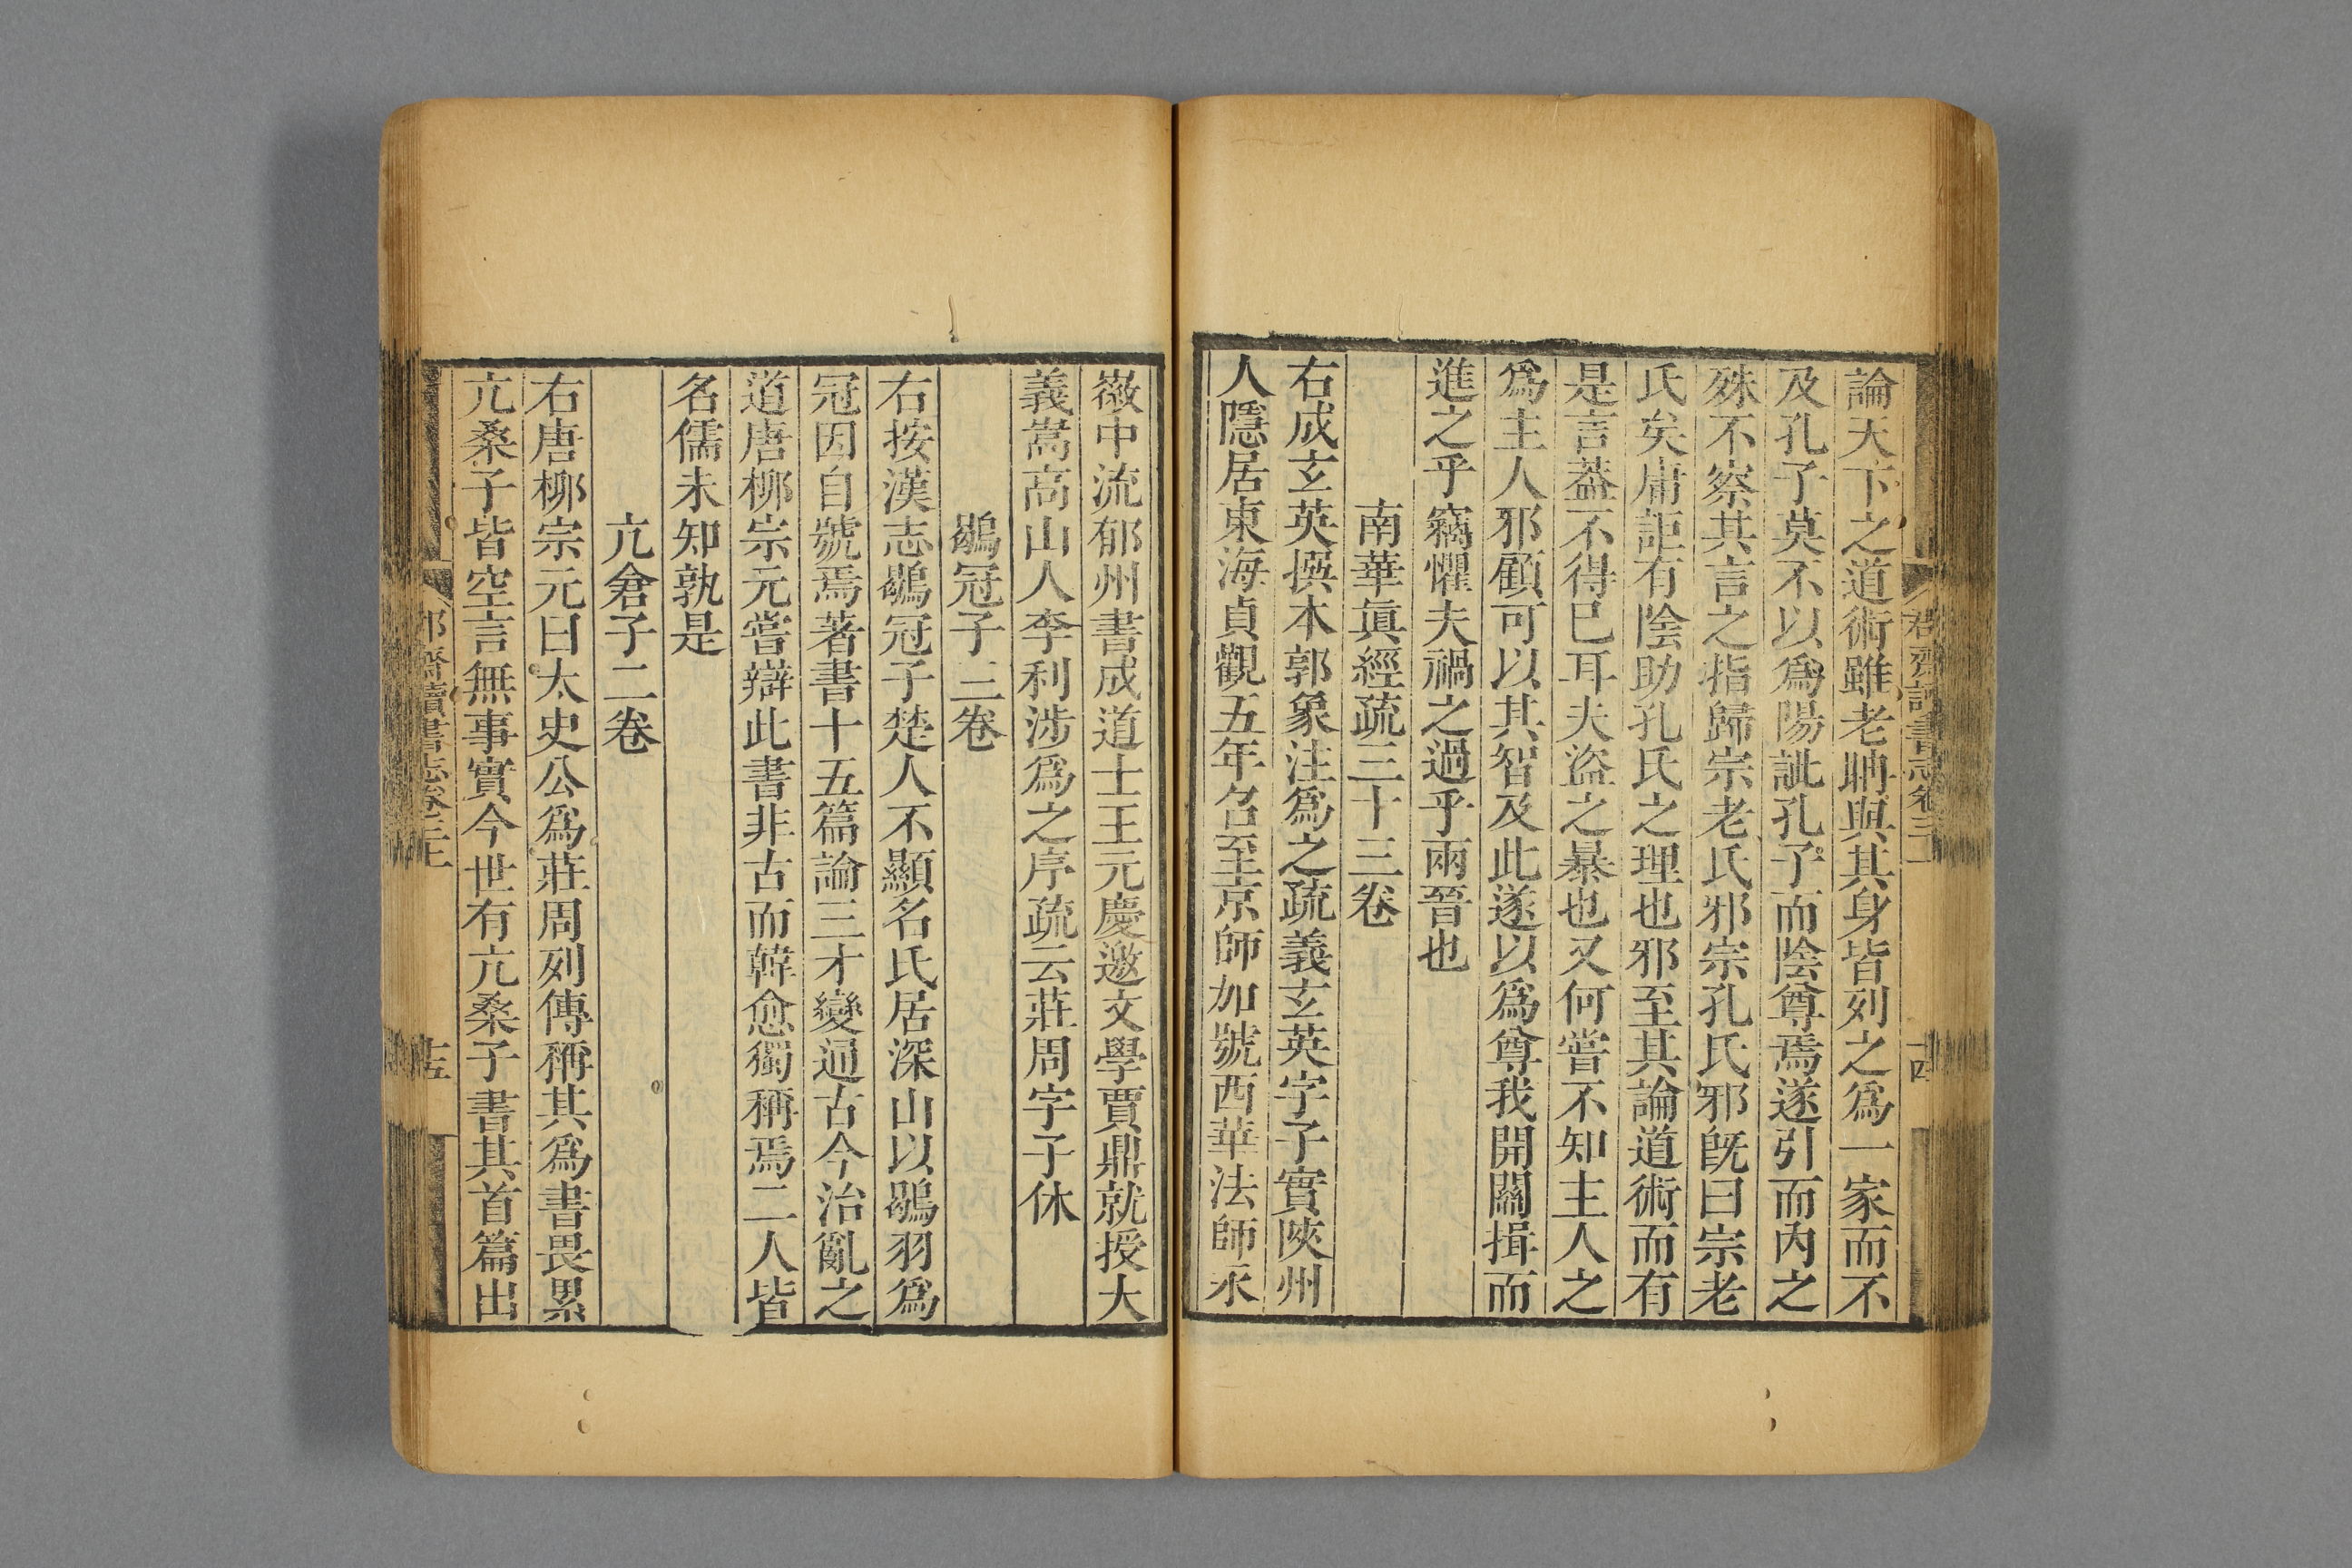 論天下之道術雖老聃與其身皆列之爲一家而不
及孔子莫不以爲陽訿孔子而陰尊焉遂引而內之
殊不察其言之指歸宗老氏邪宗孔氏邪旣曰宗老
氏矣庸詎有陰助孔氏之理也邪至其論道術而有
是言蓋不得已耳夫盜之暴也又何嘗不知主人之
爲主人邪顧可以其智及此遂以爲尊我開關揖而
進之乎竊懼夫禍之過乎兩晉也
南華眞經疏三十三卷
右成玄英撰本郭象注爲之疏義玄英字子實陝州
人隱居東海貞觀五年召至京師加號西華法師永
徽中流郁州書成道士王元慶邀文學賈鼎就授大
義嵩高山人李利涉爲之序疏云莊周字子休
鶡冠子三卷
右按漢志鶡冠子楚人不顯名氏居深山以鶡羽爲
冠因自號焉著書十五篇論三才變通古今治亂之
道唐柳宗元嘗辯此書非古而韓愈獨稱焉二人皆
名儒未知孰是
亢倉子二卷
右唐柳宗元曰太史公爲莊周列傳稱其爲書畏累
亢桑子皆空言無事實今世有亢桑子書其首篇出